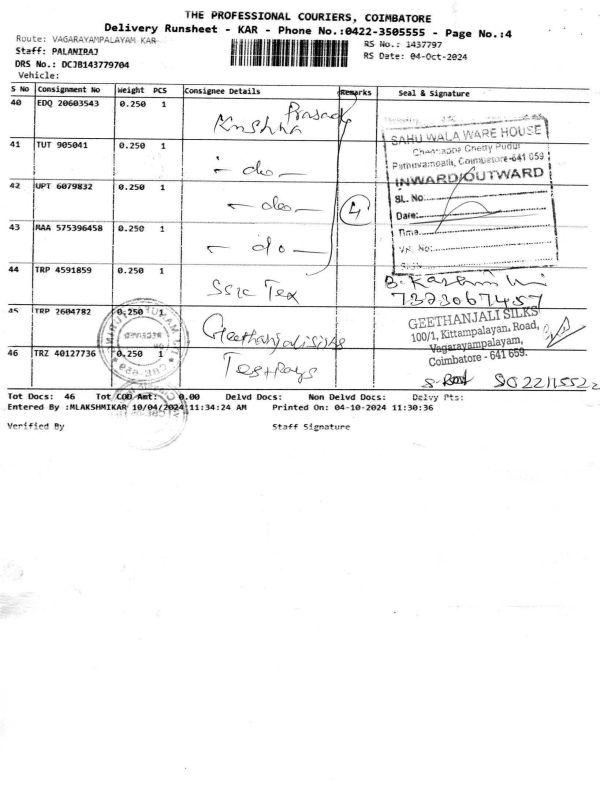 THE PROFESSIONAL COURIERS, COIMBATORE
Delivery Runsheet - KAR - Phone No.:0422-3505555 - Page No.:4
Route: VAGARAYAMPALAYAM KAR
RS No.: 1437797
Staff: PALANIRAJ
RS Date: 04-Oct-2024
DRS No.: DCJB143779704
Vehicle:
S No Consignment No Weight PCS Consignee Details Remarks Seal & Signature
40 EDQ 20603543 0.250 1 Krishna Prasad
41 TUT 905041 0.250 1 - do -
42 UPT 6079832 0.250 1 - do -
43 MAA 575396458 0.250 1 - do -
4
SAHU WALA WARE HOUSE
Chennappa Chetty Pudur
Pathuvampalli, Coimbatore-641 659
INWARD/OUTWARD
SL. No.
Date:
Time
VR. No:
Sign
44 TRP 4591859 0.250 1 Tex
7373067457
45 TRP 2604782 0.250 1 Geethanjali Silks
GEETHANJALI SILKS
100/1, Kittampalayan, Road,
Vagarayampalayam,
Coimbatore - 641 659.
46 TRZ 40127736 0.250 1
Tot Docs: 46 Tot COD Amt: 0.00 Delvd Docs: Non Delvd Docs: Delvy Pts:
Entered By :MLAKSHMIKAR 10/04/2024 11:34:24 AM Printed On: 04-10-2024 11:30:36
Verified By Staff Signature